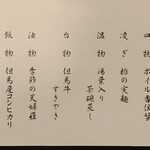 ボイル香住蟹
凌ぎ 栃の実麺
温物 湯葉入り
茶碗蒸し
台物 但馬牛
すきやき
油物 季節の天婦羅
飯物 但馬産コシヒカリ